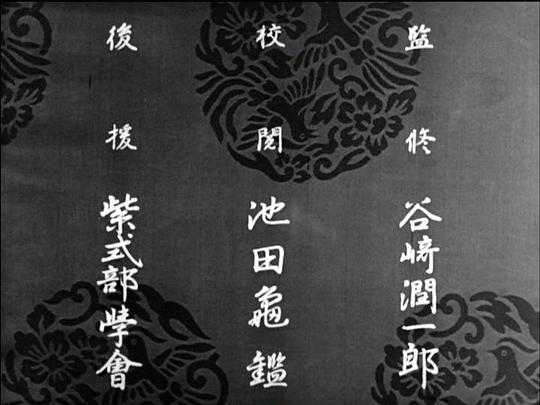 監修 谷崎潤一郎
校閲 池田龜鑑
後援 紫式部學會